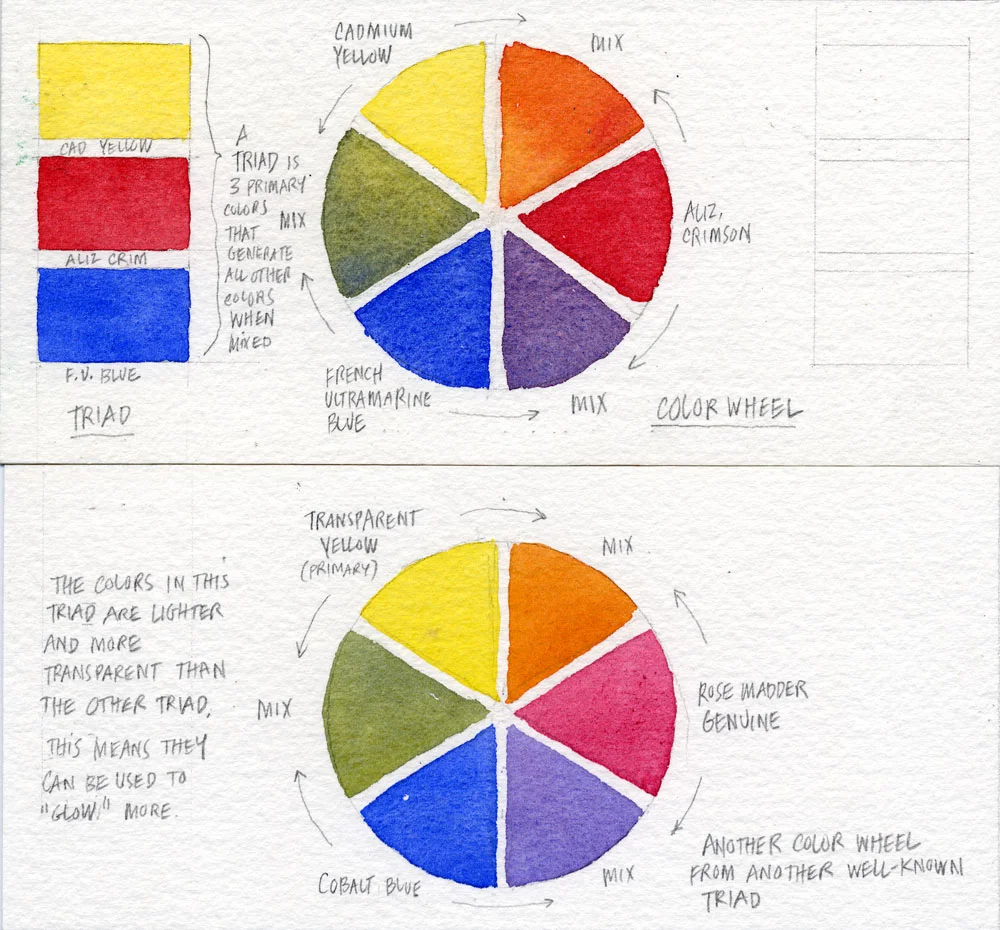 CAD YELLOW
ALIZ CRIM
F.U. BLUE
TRIAD
A
TRIAD IS
3 PRIMARY
COLORS
THAT
GENERATE
ALL OTHER
COLORS
WHEN
MIXED
CADMIUM
YELLOW
MIX
MIX
ALIZ.
CRIMSON
FRENCH
ULTRAMARINE
BLUE
MIX
COLOR WHEEL
THE COLORS IN THIS
TRIAD ARE LIGHTER
AND MORE
TRANSPARENT THAN
THE OTHER TRIAD.
THIS MEANS THEY
CAN BE USED TO
"GLOW" MORE.
TRANSPARENT
YELLOW
(PRIMARY)
MIX
MIX
ROSE MADDER
GENUINE
COBALT BLUE
MIX
ANOTHER COLOR WHEEL
FROM ANOTHER WELL-KNOWN
TRIAD